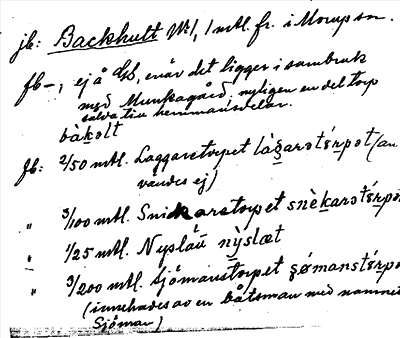 jb: Backhult No 1, 1 mtl. fr. i Morup sn.
jb–, ej å GS, enär det ligger i sambruk
med Munkagård. nyligen en del torp
salva till hemmansdelar.
bàkolt
Jb: 2/50 mtl. Laggaretorpet làgarstórpot (an
vändes ej)
" 3/100 mtl. Snickarstorpet snèkarstórpo
" 1/25 mtl. Nyslätt nỳslæt
" 3/200 mtl. Sjömanstorpet sǿmanstórpo
(innehades av en båtsman med namnet
Sjöman)